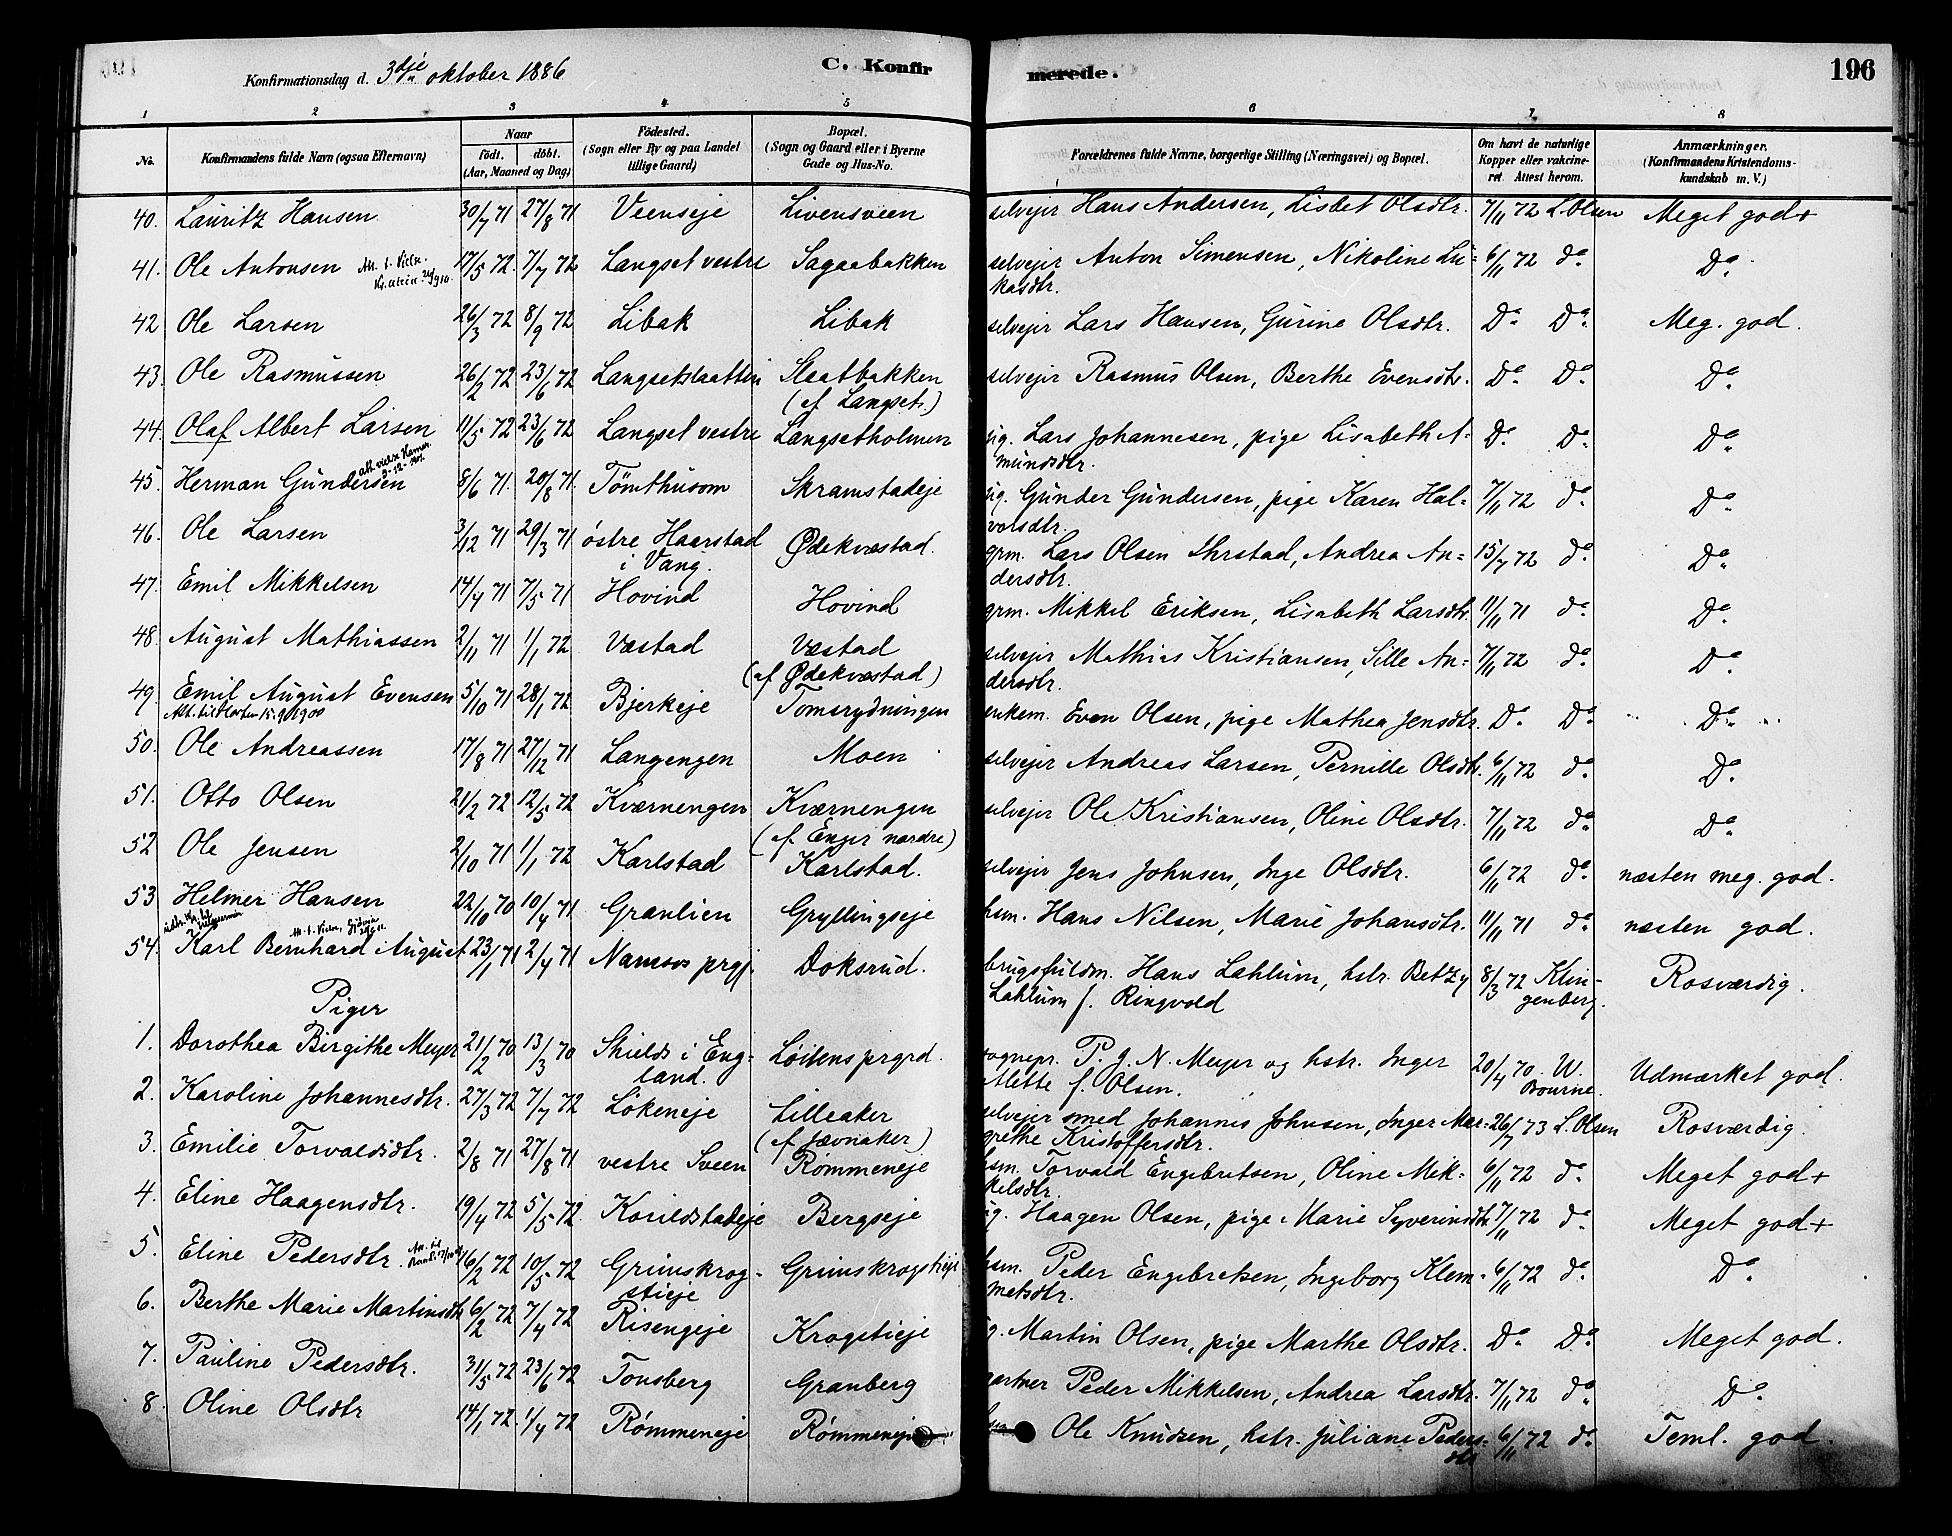 Konfirmationsdag d. 3dje oktober 1886 C. Konfir merede. 196
1 2 3 4 5 6 7 8
No. Konfirmandens fulde Navn (ogsaa Efternavn) Naar födt. döbt. (Aar, Maaned og Dag) Födested. (Sogn eller By og paa Landet tillige Gaard) Bopæl. (Sogn og Gaard eller i Byerne Gade og Hus-No. Forældrenes fulde Navne, borgerlige Stilling (Næringsvei) og Bopæl. Om havt de naturlige Kopper eller vakcineret. Attest herom. Anmærkninger. (Konfirmandens Kristendomskundskab m. V.)
40. Lauritz Hansen 30/7 71 27/8 71 Veenseje Livensveen selvejer Hans Andersen, Lisbet Olsdtr. 7/11 72 L. Olsen Meget god+
41. Ole Antonsen 17/5 72. 7/7 72 Langset vestre Sagaabakken selvejer Anton Simensen, Nikoline Lu-
kasdtr. 6/11 72 do. Do.
42 Ole Larsen 26/3 72 8/9 72 Libak Libak selvejer Lars Hansen, Gurine Olsdtr. Do. Do. Meg. god.
43. Ole Rasmussen 26/2 72 23/6 72 Langsetslaatten Slaatbakken
(af Langset.) selvejer Rasmus Olsen, Berthe Evensdtr. Do. Do. Do.
44. Olaf Albert Larsen 11/5 72 23/6 72 Langset vestre Langsetholmen ug. Lars Johannesen, pige Lisabeth A-
mundsdtr. Do. Do. Do.
45. Herman Gundersen 8/6 71. 20/8 71. Tömthusom Skramstadeje ug. Gunder Gundersen, pige Karen Hal-
vorsdtr. 7/11 72 do. Do.
46. Ole Larsen 3/12 71 29/3 71 östre Haarstad
i Vang. Ødekvæstad. grm. Lars Olsen Ihrstad, Andrea An-
dersdtr. 15/7 72 do. Do.
47. Emil Mikkelsen 14/4 71 7/5 71 Hovind Hovind grm. Mikkel Eriksen, Lisabeth Larsdtr. 11/11 71 do. Do.
48. August Mathiassen 2/11 71 1/1 72 Væstad Væstad
(af Ødekvæstad) selvejer Mathias Kristiansen, Sille An-
dersdtr. 7/11 72 do. Do.
49. Emil August Evensen 5/10 71 28/1 72 Bjerkeje Tomsrydningen enkem. Even Olsen, pige Mathea Jensdtr. Do. Do. Do.
Att. til Horten 15.9.1900
50. Ole Andreassen 17/8 71 27/12 71 Langengen Moen selvejer Andreas Larsen, Pernille Olsdtr. 6/11 72 do. Do.
51. Otto Olsen 21/2 72 12/5 72 Kværnengen Kværnengen
(af Enger nordre) selvejer Ole Kristiansen, Oline Olsdtr. 7/11 72 do. Do.
52 Ole Jensen 2/10 71 1/1 72 Karlstad Karlstad. selvejer Jens Johnsen, Inge Olsdtr. 6/11 72 do. næsten meg. god.
53 Helmer Hansen 22/10 70 10/4 71 Granlien Gryllingseje hsm. Hans Nilsen, Marie Johansdtr. 11/11 71 do. næsten god.
54. Karl Bernhard August 23/1 71 2/4 71 Namsos prgj. Doksrud. brugsfuldm. Hans Lahlum, hstr. Betzy
Lahlum f. Ringvold 8/3 72 Klin-
genberg. Rosværdig.
Piger
1. Dorothea Birgithe Meyer 21/2 70 13/3 70 Shields i Eng-
land. Löitens prgrd. sognepr. P. J. N. Meyer og hstr. Inger
Mette f. Olsen. 20/4 70. W.
Bourne. Udmærket god.
2. Karoline Johannesdtr. 27/3 72 7/7 72 Lökeneje Lilleaker
(af Jævnaker) selvejer smed Johannis Johnsen, Inger Mar-
grethe Kristoffersdtr. 26/7 73 L. Olsen Rosværdig.
3. Emilie Torvaldsdtr. 2/8 71 27/8 71 vestre Sveen Rømmeneje hsm. Torvald Engebretsen, Oline Mik-
kelsdtr. 6/11 72 do. Meget god+
4. Eline Haagensdtr. 19/4 72 5/5 72 Korildstadeje Bergseje ug. Haagen Olsen, pige Marie Syverinsdtr 7/11 72 do. Meget god+
5. Eline Pedersdtr. 16/2 72 10/5 72 Grimskrog-
stieje Grimskrogstieje hsm. Peder Engebretsen, Ingeborg Klem-
metsdtr. 6/11 72 do. Do.
6. Berthe Marie Martinsdtr 6/2 72 7/4 72 Risengeje Krogstieje ug. Martin Olsen, pige Marthe Olsdtr. Do. Do. Meget god.
7. Pauline Pedersdtr. 31/5 72 23/6 72 Tonsberg Granberg gartner Peder Mikkelsen, Andrea Larsdtr. 7/11 72 do. Do.
8. Oline Olsdtr 14/1 72. 1/4 72 Rømmeneje Rømmeneje hsm Ole Knudsen, hstr. Juliane Peders-
dtr 6/11 72 do. Teml. god.